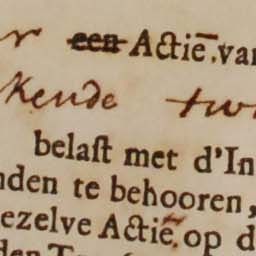 r een Actie̅. van
kende tw
belaſt met d'In
nden te behooren,
ezelve Actie̅. op d